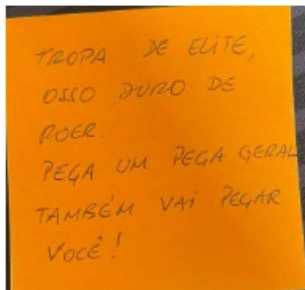 TROPA DE ELITE,
OSSO DURO DE
ROER.
PEGA UM PEGA GERAL
TAMBÉM VAI PEGAR
VOCÊ!